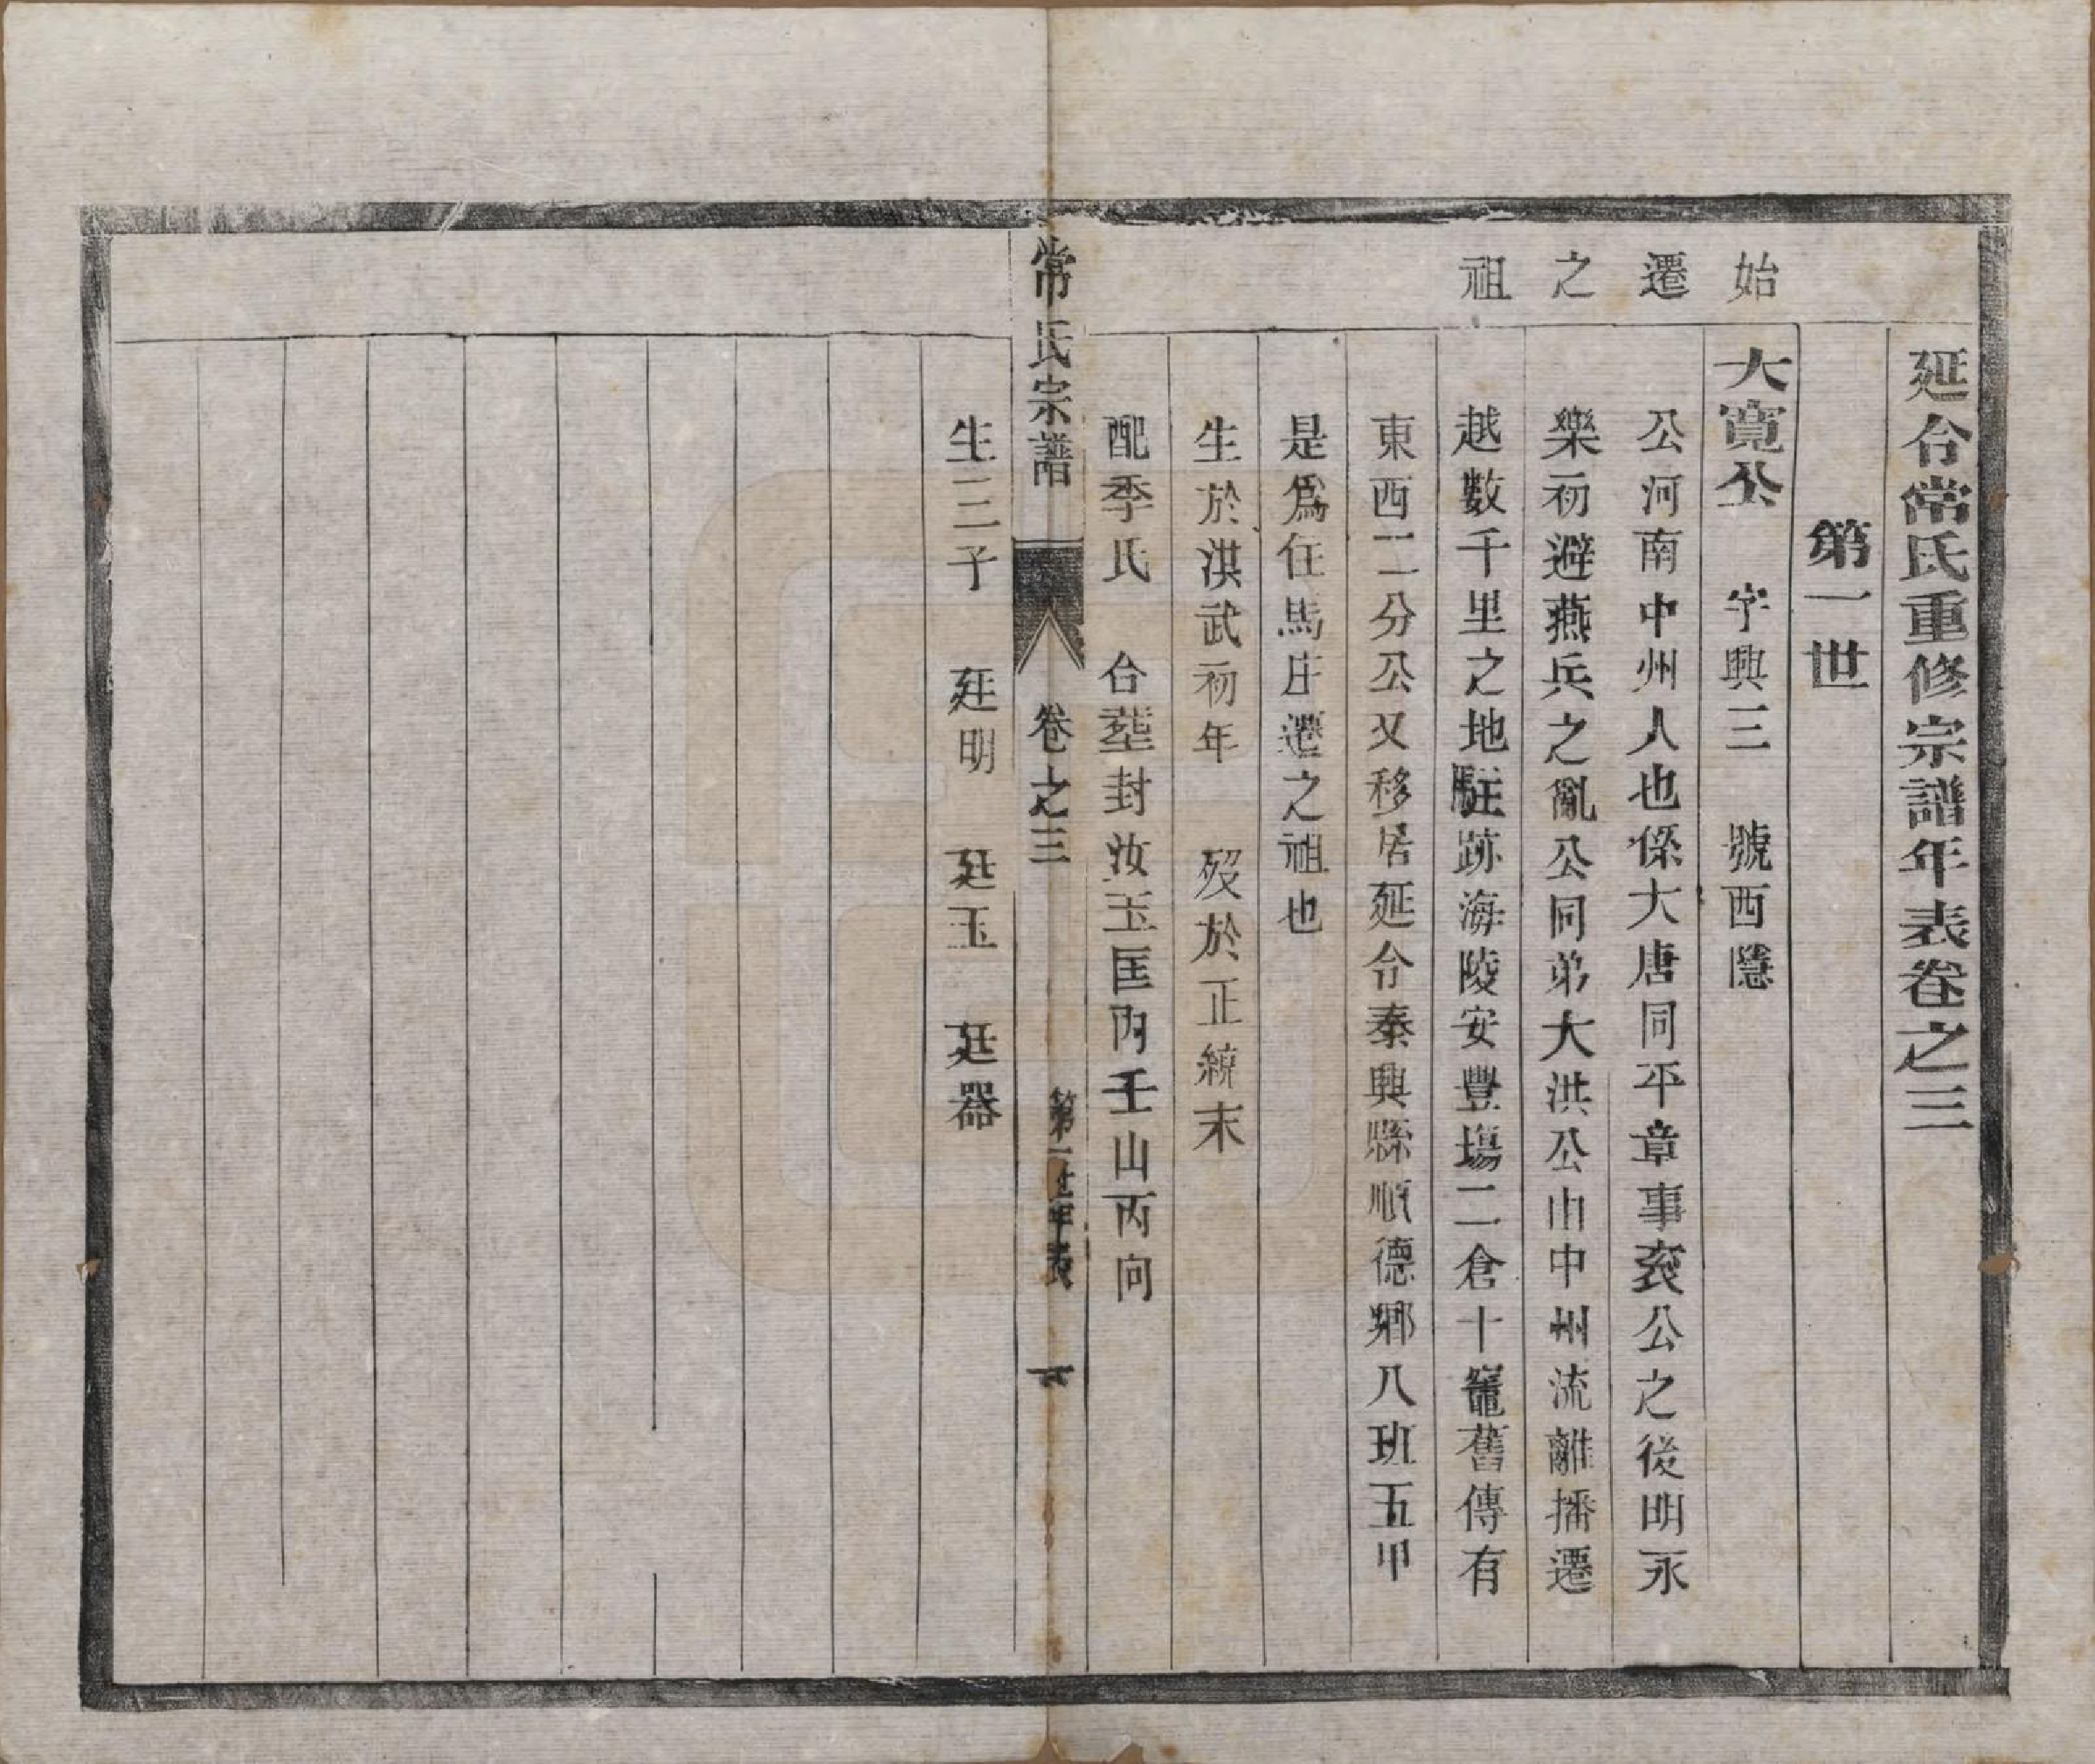 延令常氏重修宗譜年表卷之三
第一世
始遷之祖
大寬公 字興三 號西隱
公河南中州人也係大唐同平章事袞公之後明永
樂初避燕兵之亂公同弟大洪公由中州流離播遷
越數千里之地駐跡海陵安豐塲二倉十竈舊傳有
東西二分公又移居延令泰興縣順德鄉八班五甲
是爲任馬庄遷之祖也
生於洪武初年 歿於正統末
配季氏 合塟封汝玉匡內壬山丙向
常氏宗譜 卷之三 第一世年表 一
生三子 廷明 廷玉 廷器